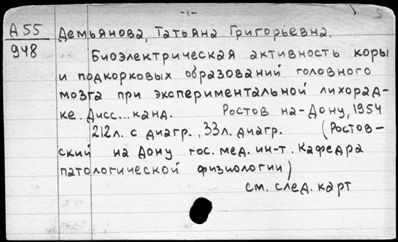 -1-
А55 Демьянова, Татьяна Григорьевна.
948 Биоэлектрическая активность коры
и подкорковых образований головного
мозга при экспериментальной лихорад-
ке. Дисс... канд. Ростов на-Дону, 1954
212л. с диагр., 33л. диагр. (Ростов-
ский на Дону гос. мед. ин-т. Кафедра
патологической физиологии)
см. след. карт